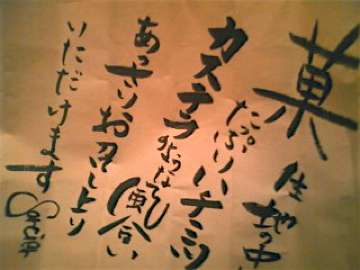 菓
生地の中
たっぷりハチミツ
カステラのような
あっさりお召し上り
いただけます